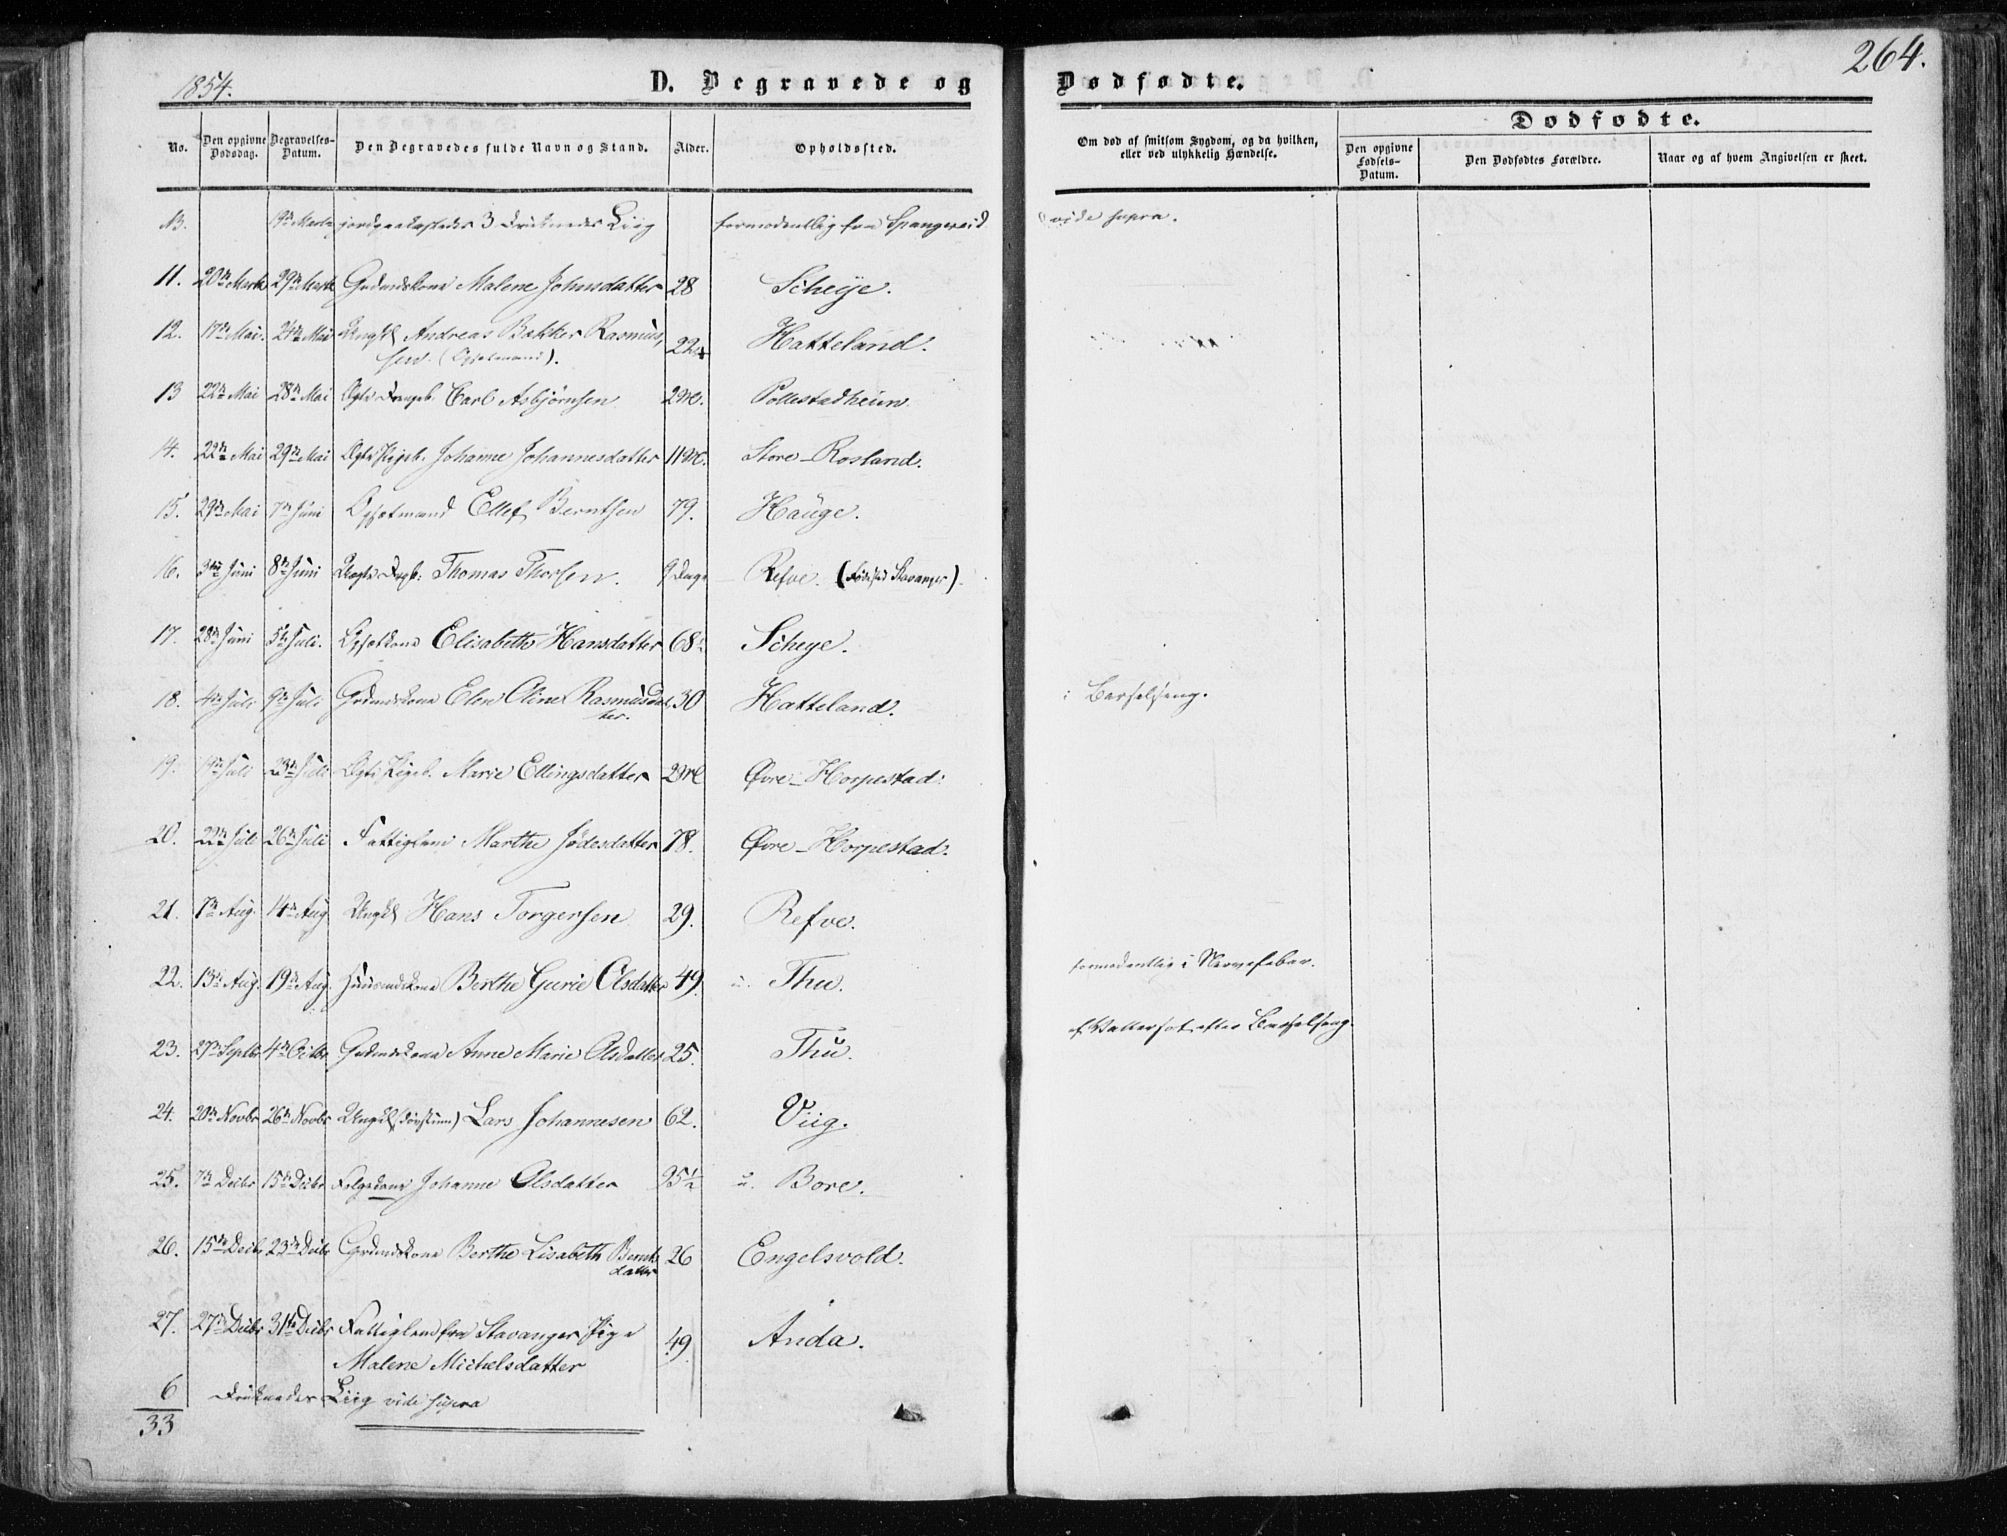 264.
1854.
D. Begravede og Dødfødte.
Dødfødte.
No.
Den opgivne Dødsdag.
Begravelses-Datum.
Den Begravedes fulde Navn og Stand.
Alder.
Opholdssted.
Om død af smitsom Sygdom, og da hvilken, eller ved ulykkelig Hændelse.
Den opgivne Fødsels-Datum.
Den Dødfødtes Forældre.
Naar og af hvem Angivelsen er skeet.
19de Marts jordpaakastedes 3 Druknedes Liig formodentlig fra Spangereid vide supra.
11. 20de Marts 29de Marts Gaardmdskone Malene Johnsdatter 28 Scheije.
12. 17de Mai. 24de Mai Ungkl Andreas Bakker Rasmus,
sen (Opsetmand). 22 Hatteland.
13 22de Mai 28de Mai Ægte Drengeb. Carl Asbjørnsen 2 M. Pollestadheien
14. 22de Mai 29de Mai Ægte Pigeb. Johanne Johannesdatter 11 M. Store-Rosland.
15. 29de Mai 7de Juni Opsetmand Ellef Berntsen 79. Hauge.
16. 3die Juni 8de Juni Uægte Drgb. Thomas Thorsen. 9 Dage Refve. (Fødested Stavanger).
17. 28de Juni 5te Juli. Opsetkone Elisabeth Hansdatter 68 Scheye.
18. 4de Juli 9de Juli Grdmdskone Elen Oline Rasmusdat,
ter. 30 Hatteland. i Barselseng.
19. 19de Juli 23de Juli Ægte Pigeb. Marie Ellingsdatter 2 M Øvre-Horpestad.
20. 22de Juli 26de Juli Fattiglem Marthe Jødesdatter 78. Øvre-Horpestad.
21. 7de Aug. 14de Aug. Ungkl Hans Torgersen 29. Refve.
22. 13de Aug. 19de Aug. Huusmdskone Berthe Gurie Olsdatter 49. u. Thu. formodentlig i Nervefeber.
23. 27de Septbr 4de Octbr Gaardmdskone Anne Marie Olsdatter 25. Thu. af Vattersot efter Barselseng.
24. 20de Novbr 26de Novbr Ungkl (Døvstum) Lars Johannesen 62. Viig.
25. 7de Decbr 15de Decbr Johanne Olsdatter 95½ u. Bore.
26. 15de Decbr 23de Decbr Grdmdskone Berthe Lisabeth Bernts
datter 26 Engelsvold.
27. 27de Decbr 31te Decbr Fattiglem fra Stavanger Pige
Malene Michelsdatter 49. Anda.
6 Druknedes Liig vide supra
33